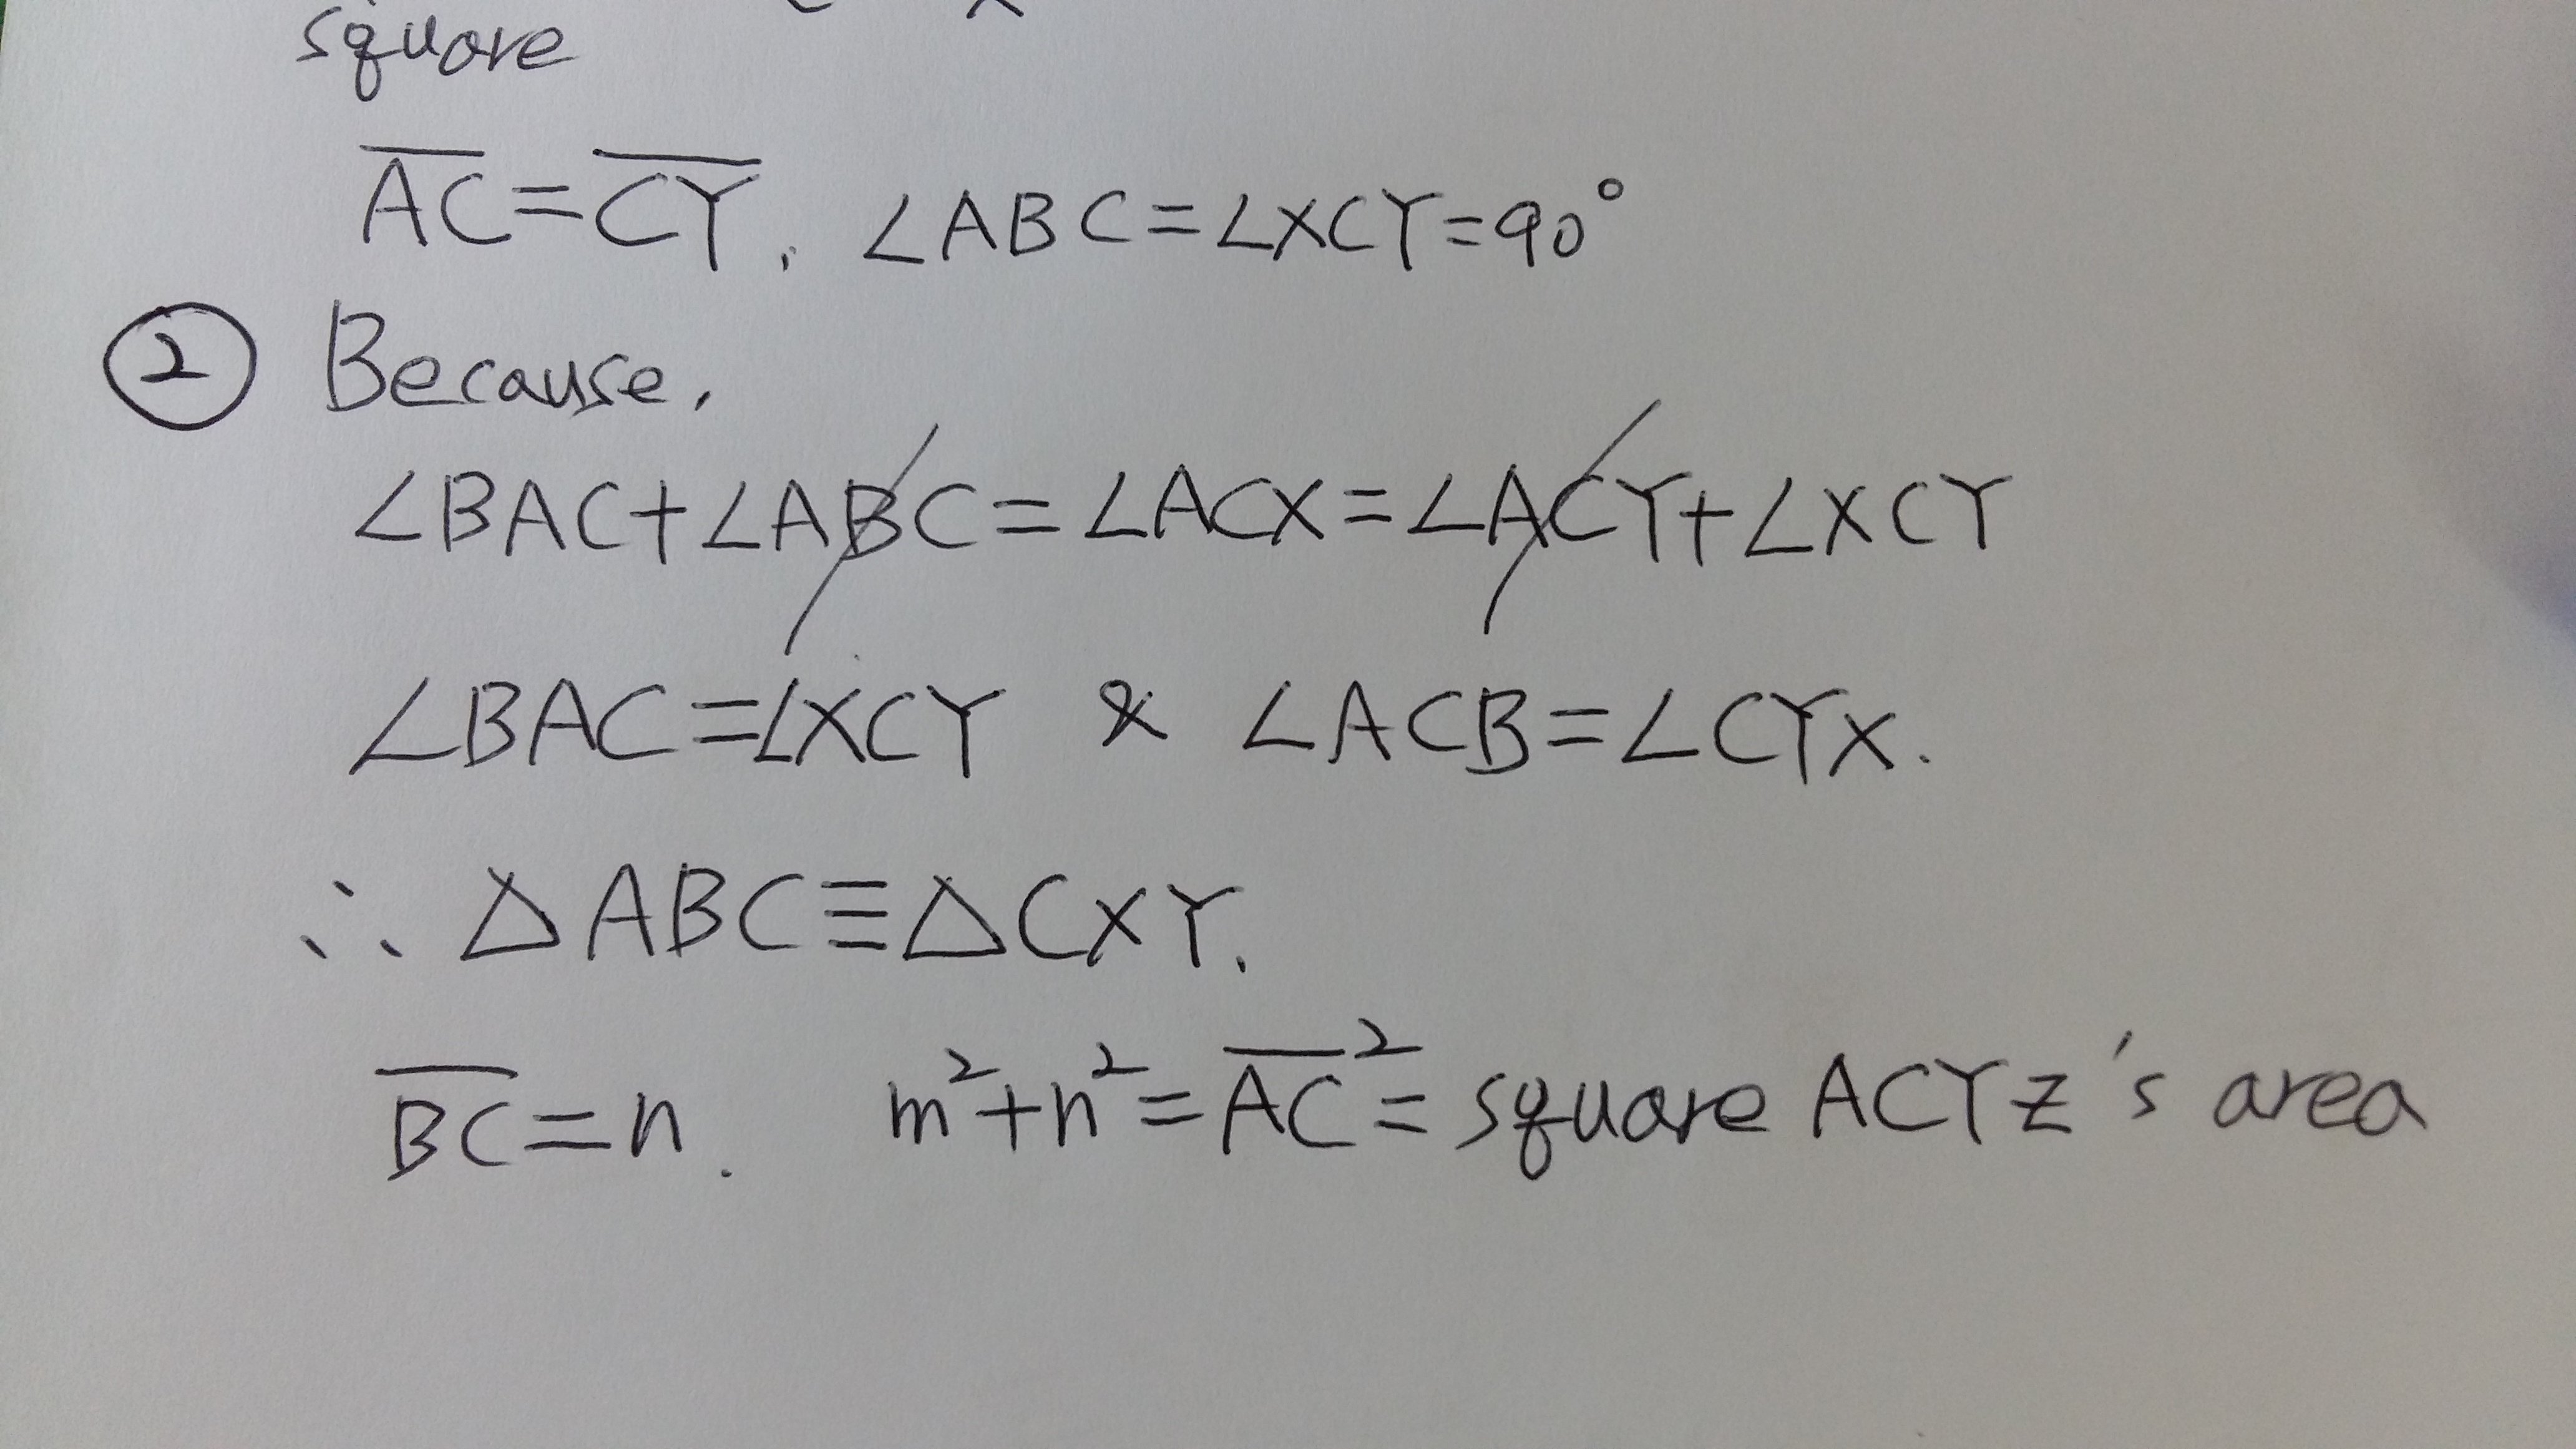 square
A̅C̅=C̅Y̅, ∠ABC=∠XCY=90°
② Because,
∠BAC+∠ABC=∠ACX=∠ACY+∠XCY
∠BAC=∠XCY & ∠ACB=∠CYX.
∴ △ABC≡△CXY.
B̅C̅=n. m²+n²=A̅C̅²=square ACYZ's area